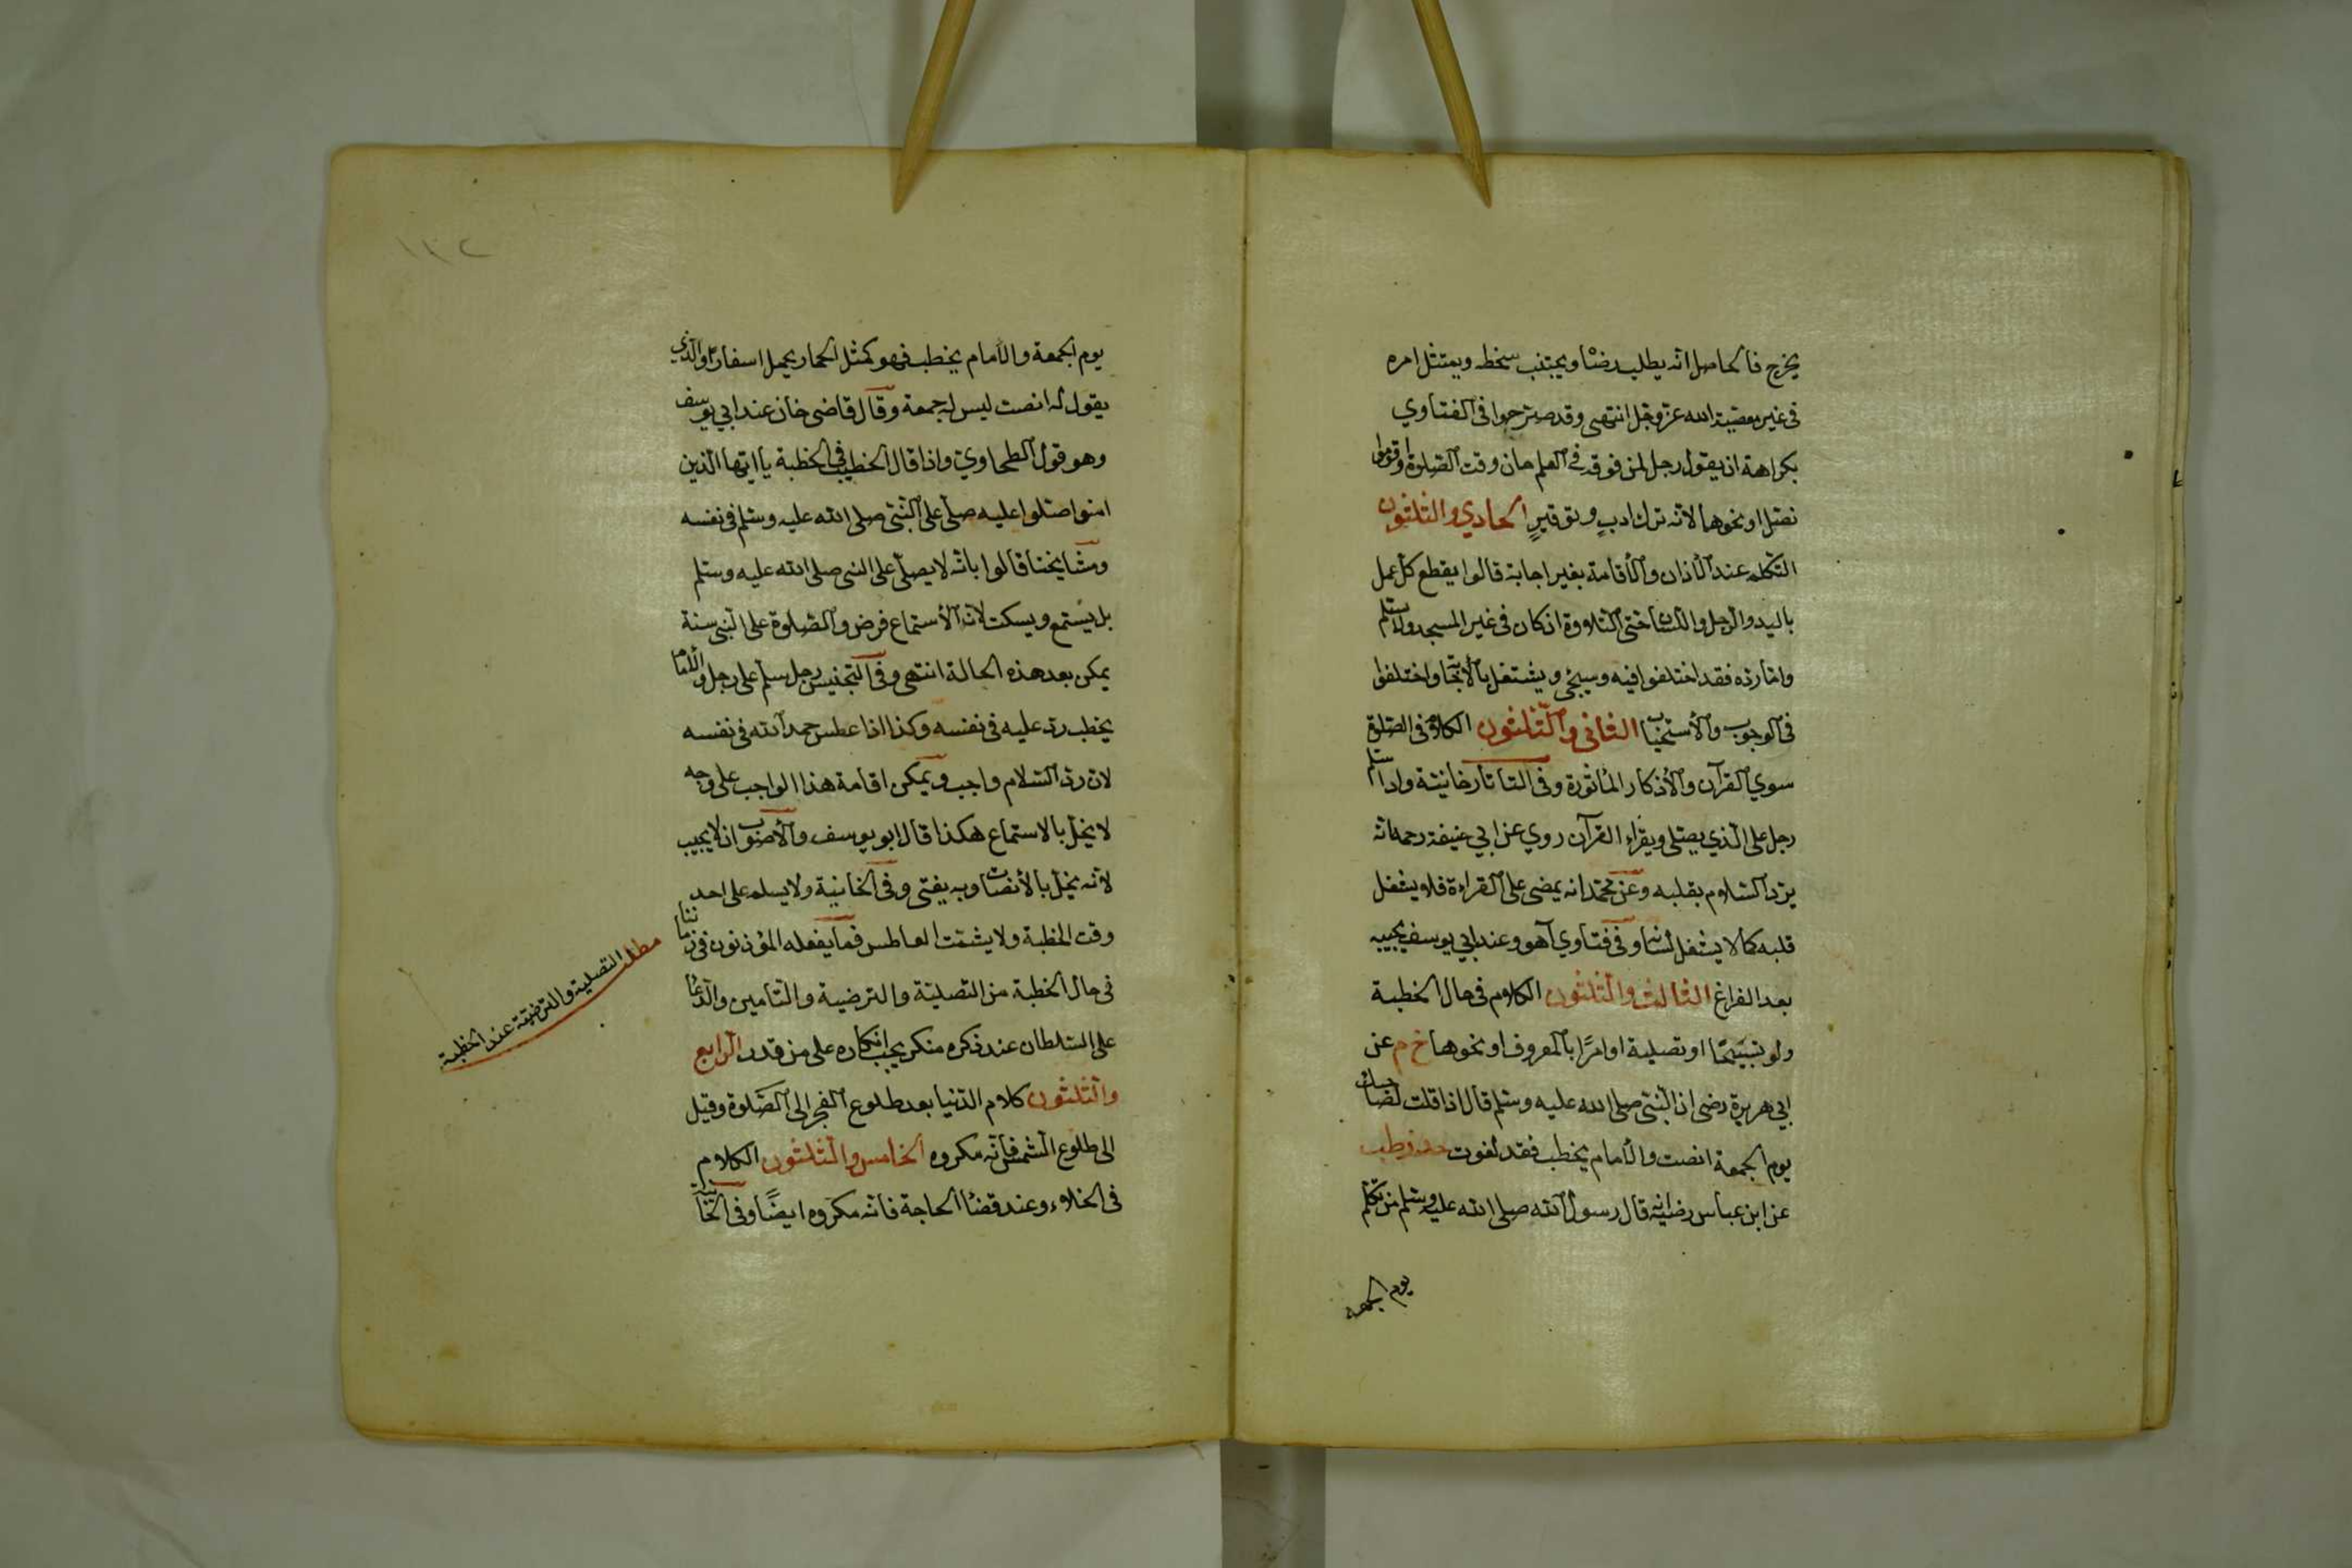 يخرج فالحاصل انه يطلب رضا ويجتنب سخطه ويمتثل امره
فى غير معصية الله عز وجل انتهى وقد صرحوا فى الفتاوي
بكراهة ان يقول رجل لمن فوقه فى العلم حان وقت الصلوة او قوموا
نصل او نحوها لانه ترك ادب وتوقير الحادي والثلثون
التكلم عند الأذان والأقامة بغير اجابة قالوا يقطع كل عمل
باليد والرجل واللسان حتى التلاوة ان كان فى غير المسجد ولا يسلم
واما رده فقد اختلفوا فيه وسيجئ ويشتغل بالأجابة واختلفوا
فى الوجوب والأستحباب الثانى والثلثون الكلام فى الصلوة
سوي القرآن والأذكار المأثورة وفى التاتارخانية واذا سلم
رجل على الذي يصلى ويقراء القرآن روي عن ابي حنيفة رحمه الله انه
يرد السلام بقلبه وعن محمد انه يمضى على القراءة فلا يشغل
قلبه كما لا يشغل لسانه وفى فتاوي آهو وعند ابي يوسف يجيبه
بعد الفراغ الثالث والثلثون الكلام فى حال الخطبة
ولو تسبيحا او تصلية او امرا بالمعروف او نحوها خ م عن
ابي هريرة رضى ان النبى صلى الله عليه وسلم قال اذا قلت لصاحبك
يوم الجمعة انصت والأمام يخطب فقد لغوت حد ز طب
عن ابن عباس رضى الله قال رسول الله صلى الله عليه وسلم من تكلم
يوم الجمعة
١٣٢
يوم الجمعة والأمام يخطب فهو كمثل الحمار يحمل اسفارا والذي
يقول له انصت ليس له جمعة وقال قاضى خان عند ابي يوسف
وهو قول الطحاوي واذا قال الخطيب فى الخطبة يا ايها الذين
امنوا صلوا عليه صلى على النبى صلى الله عليه وسلم فى نفسه
ومشايخنا قالوا بانه لا يصلى على النبى صلى الله عليه وسلم
بل يستمع ويسكت لان الأستماع فرض والصلوة على النبى سنة
يمكن بعد هذه الحالة انتهى وفى التجنيس رجل سلم على رجل والأمام
يخطب رد عليه فى نفسه وكذا اذا عطس حمد الله فى نفسه
لان رد السلام واجب ويمكن اقامة هذا الواجب على وجه
لا يخل بالاستماع هكذا قال ابو يوسف والأصوب ان لا يجيب
لانه يخل بالأنصات وبه يفتى وفى الخانية ولا يسلم على احد
وقت الخطبة ولا يشمت العاطس فما يفعله المؤذنون فى زماننا
فى حال الخطبة من التصلية والترضية والتأمين والدعا
على السلطان عند ذكره منكر يجب انكاره على من قدر الرابع
والثلثون كلام الدنيا بعد طلوع الفجر الى الصلوة وقيل
الى طلوع الشمس فانه مكروه الخامس والثلثون الكلام
فى الخلاء وعند قضا الحاجة فانه مكروه ايضا وفى الخانية
مطلب التصلية والترضية عند الخطبة